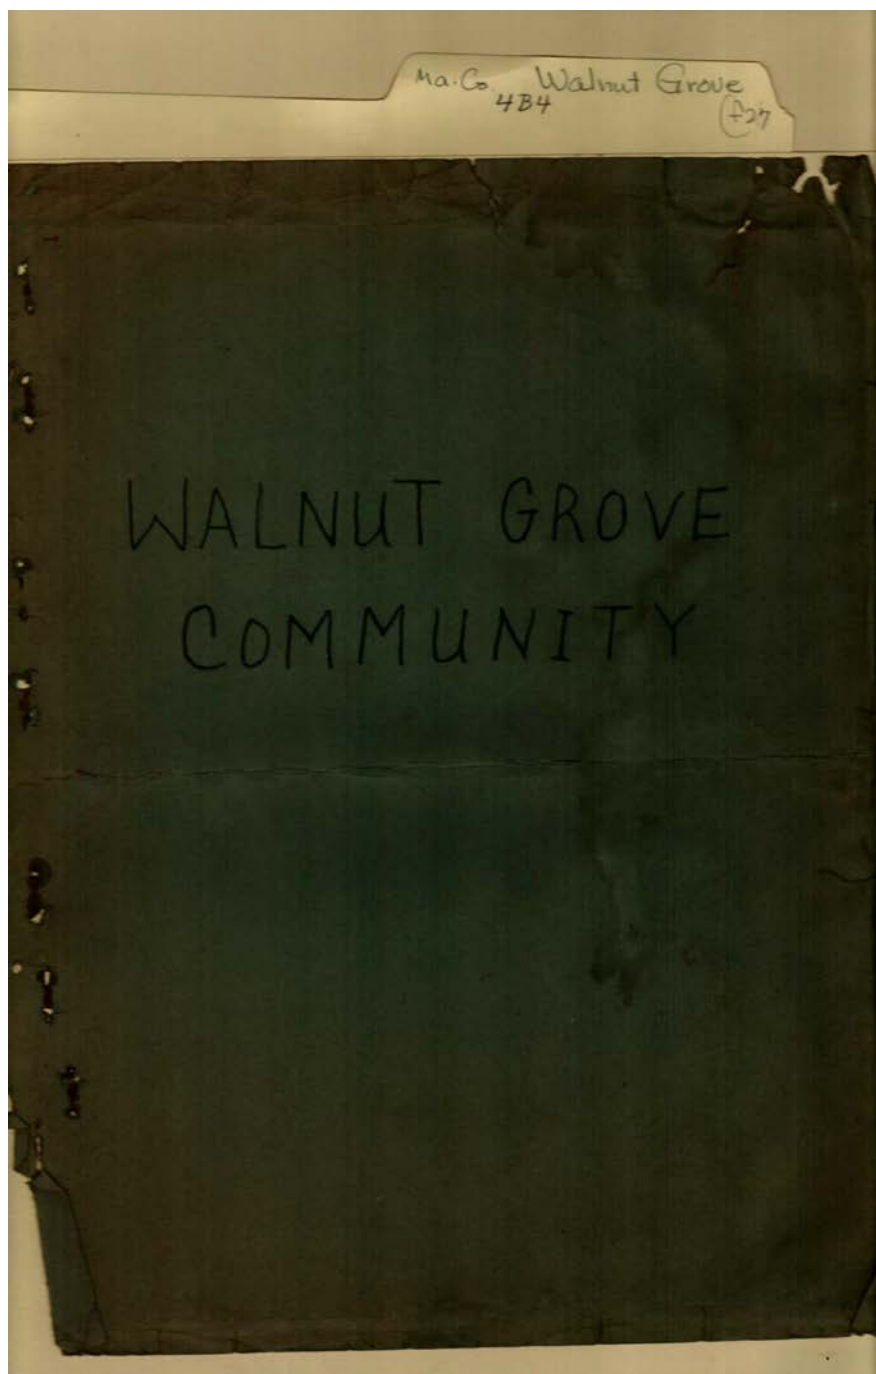 Ma. Co. Walnut Grove
4B4
f27
WALNUT GROVE
COMMUNITY